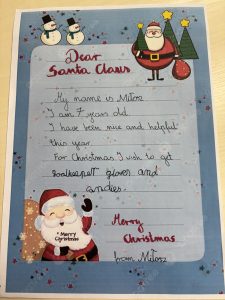 Dear
Santa Claus
My name is Miłosz
I am 7 years old
I have been nice and helpful
this year
For Christmas I wish to get
Goalkeeper gloves and
candies.
Merry
Christmas
Merry
Christmas
from Miłosz